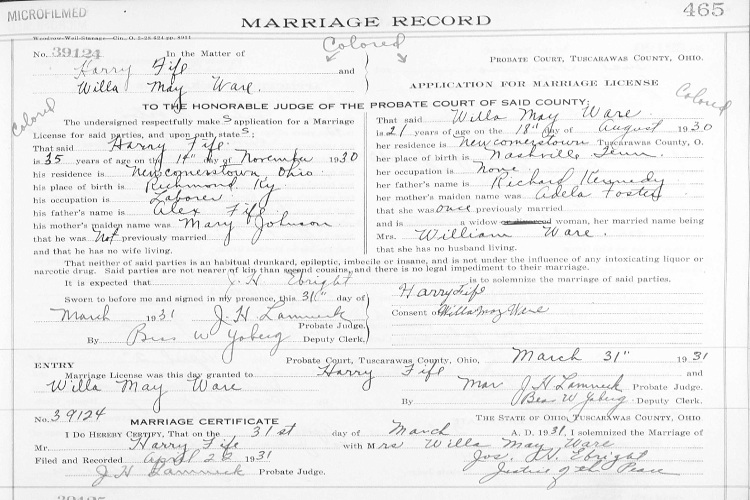 MICROFILMED
MARRIAGE RECORD
465
No. 39124 In the Matter of
Colored
PROBATE COURT, TUSCARAWAS COUNTY, OHIO.
Harry Fife
and
Willa May Ware.
APPLICATION FOR MARRIAGE LICENSE
Colored
Colored
TO THE HONORABLE JUDGE OF THE PROBATE COURT OF SAID COUNTY;
The undersigned respectfully make s application for a Marriage
License for said parties, and upon oath state s;
That said Harry Fife
is 35 years of age on the day of November 1930
his residence is Newcomerstown, Ohio
his place of birth is Richmond Ky
his occupation is Laborer
his father's name is Alex Fife
his mother's maiden name was Mary Johnson
that he was not previously married
and that he has no wife living.
That said Willa May Ware
is 21 years of age on the 18" day of August 1930
her residence is Newcomerstown Tuscarawas County, O.
her place of birth is Nashville Tenn.
her occupation is None
her father's name is Richard Kennedy
her mother's maiden name was Adela Foster
that she was once previously married
and is a widow or divorced woman, her married name being
Mrs. William Ware.
that she has no husband living.
That neither of said parties is an habitual drunkard, epileptic, imbecile or insane, and is not under the influence of any intoxicating liquor or
narcotic drug. Said parties are not nearer of kin than second cousins, and there is no legal impediment to their marriage.
It is expected that J. H Ebright is to solemnize the marriage of said parties.
Sworn to before me and signed in my presence, this 31" day of
March 1931 J. H Lamneck
Probate Judge.
By Bess W Yaberg Deputy Clerk.
Harry Fife
Consent of Willa May Ware
ENTRY
Probate Court, Tuscarawas County, Ohio, March 31" 1931
Marriage License was this day granted to Harry Fife and
Willa May Ware
J H Lamneck Probate Judge.
By Bess W Yaberg Deputy Clerk.
No. 39124
MARRIAGE CERTIFICATE
THE STATE OF OHIO, TUSCARAWAS COUNTY, OHIO
I DO HEREBY CERTIFY, That on the 31st day of March A. D. 1931, I solemnized the Marriage of
Mr. Harry Fife with Mrs Willa May Ware
Filed and Recorded April 1931
Jos. H. Ebright
J H Lamneck Probate Judge.
Justice of the Peace